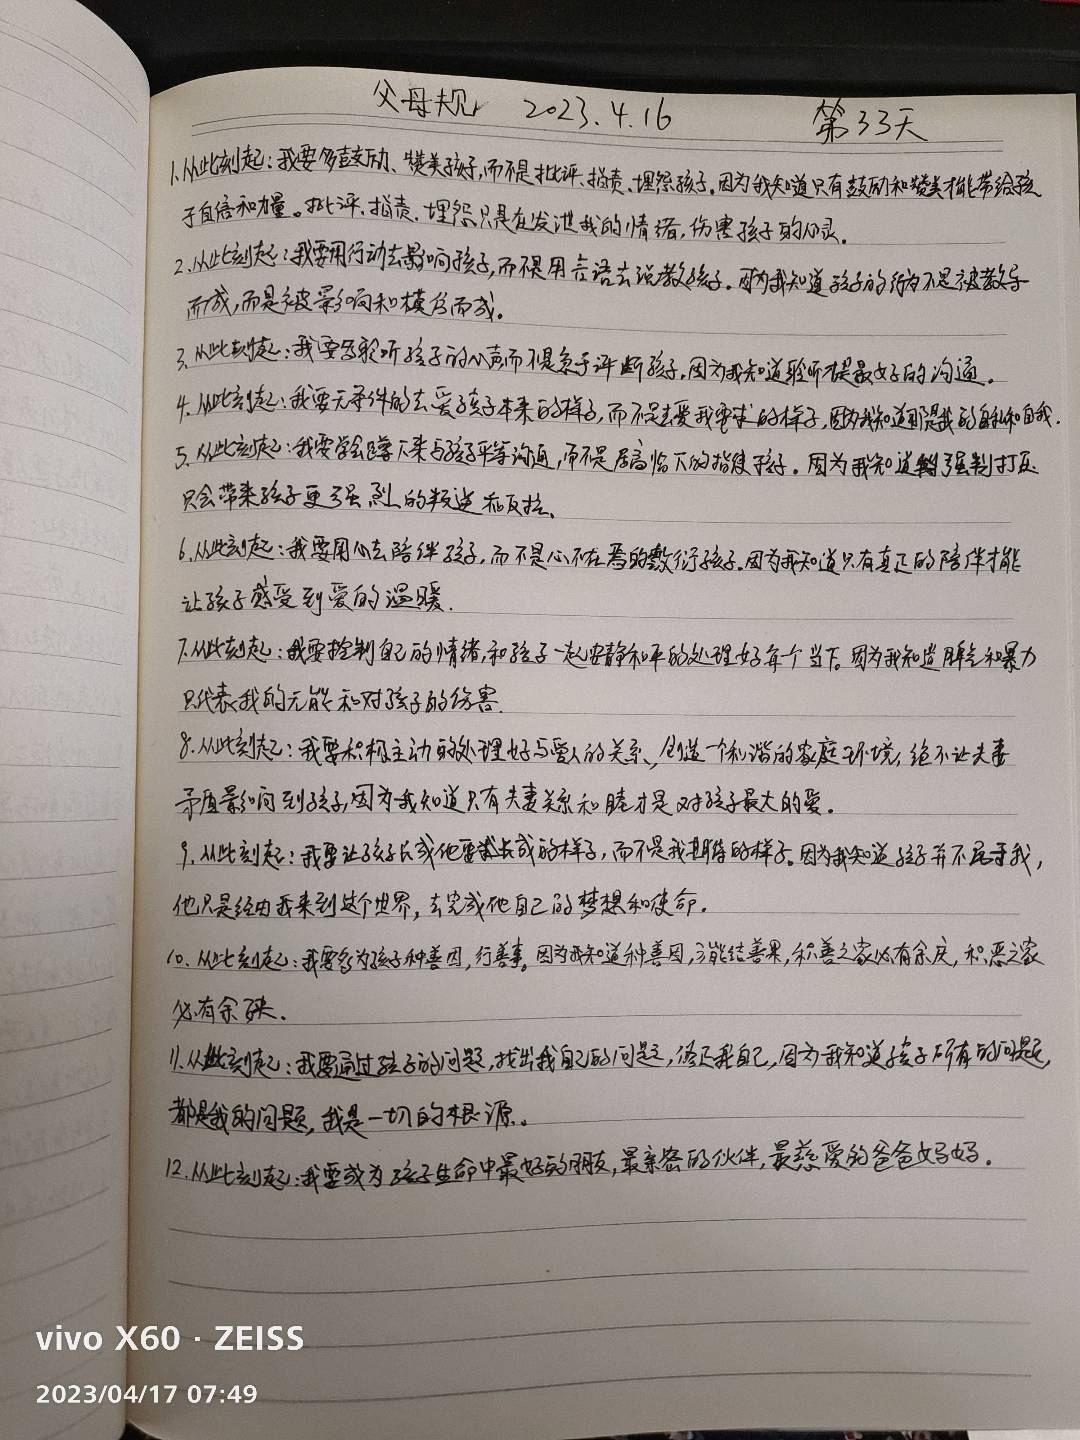 父母规 2023.4.16 第33天
1.从此刻起:我要多鼓励、赞美孩子,而不是批评、指责、埋怨孩子。因为我知道只有鼓励和赞美才能带给孩
子自信和力量。批评、指责、埋怨只是在发泄我的情绪,伤害孩子的心灵。
2.从此刻起:我要用行动去影响孩子,而不是用言语去说教孩子。因为我知道孩子的行为不是被教导
而成,而是被影响和模仿而成。
3.从此刻起:我要多聆听孩子的心声而不是急于评断孩子。因为我知道聆听才是最好的沟通。
4.从此刻起:我要无条件的去爱孩子本来的样子,而不是去爱我要求的样子,因为我知道那是我的自私和自我.
5.从此刻起:我要学会蹲下来与孩子平等沟通,而不是居高临下的指使孩子。因为我知道强制打压
只会带来孩子更强烈的叛逆和反抗、
6.从此刻起:我要用心去陪伴孩子,而不是心不在焉的敷衍孩子。因为我知道只有真正的陪伴才能
让孩子感受到爱的温暖.
7.从此刻起:我要控制自己的情绪,和孩子一起安静和平的处理好每个当下。因为我知道脾气和暴力
只代表我的无能和对孩子的伤害.
8.从此刻起:我要积极主动的处理好与爱人的关系,创造一个和谐的家庭环境,绝不让夫妻
矛盾影响到孩子,因为我知道只有夫妻关系和睦才是对孩子最大的爱。
9.从此刻起:我要让孩子长成他要长成的样子,而不是我期待的样子。因为我知道孩子并不属于我,
他只是经由我来到这个世界,去完成他自己的梦想和使命.
10.从此刻起:我要多为孩子种善因,行善事。因为我知道种善因,方能结善果,积善之家必有余庆,积恶之家
必有余殃.
11.从此刻起:我要通过孩子的问题,找出我自己的问题,修正我自己,因为我知道孩子所有的问题,
都是我的问题,我是一切的根源。
12.从此刻起:我要成为孩子生命中最好的朋友,最亲密的伙伴,最慈爱的爸爸妈妈.
vivo X60 · ZEISS
2023/04/17 07:49